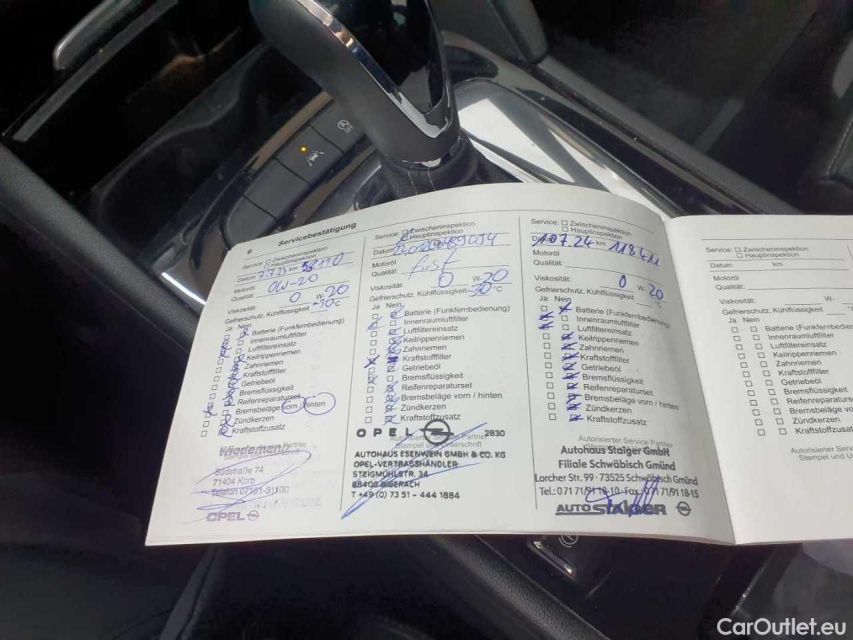 6 Servicebestätigung
Service: Zwischeninspektion
Hauptinspektion
Datum 7.7.23 km
Motoröl
Qualität: 0W-20
Viskosität: 0 W- 20
Gefrierschutz, Kühlflüssigkeit -30°C
Ja Nein
Batterie (Funkfernbedienung)
Innenraumluftfilter
Luftfiltereinsatz
Keilrippenriemen
Zahnriemen
Kraftstoffilter
Getriebeöl
Bremsflüssigkeit
Reifenreparaturset
Bremsbeläge vorn / hinten
Zündkerzen
Kraftstoffzusatz
Autorisierter Service Partner
Wiedemann
Südstraße 74
71404 Korb
Telefon 07151-31100
OPEL
Service: Zwischeninspektion
Hauptinspektion
Datum
Motoröl
Qualität:
Viskosität: 0 W- 20
Gefrierschutz, Kühlflüssigkeit -30°C
Ja Nein
Batterie (Funkfernbedienung)
Innenraumluftfilter
Luftfiltereinsatz
Keilrippenriemen
Zahnriemen
Kraftstoffilter
Getriebeöl
Bremsflüssigkeit
Reifenreparaturset
Bremsbeläge vorn / hinten
Zündkerzen
Kraftstoffzusatz
OPEL 2830
AUTOHAUS ESENWEIN GMBH & CO. KG
OPEL-VERTRAGSHÄNDLER
STEIGMÜHLSTR. 34
88400 BIBERACH
T +49 (0) 73 51 - 444 1884
Service: Zwischeninspektion
Hauptinspektion
Datum 07.24 km
Motoröl
Qualität:
Viskosität: 0 W- 20
Gefrierschutz, Kühlflüssigkeit °C
Ja Nein
Batterie (Funkfernbedienung)
Innenraumluftfilter
Luftfiltereinsatz
Keilrippenriemen
Zahnriemen
Kraftstoffilter
Getriebeöl
Bremsflüssigkeit
Reifenreparaturset
Bremsbeläge vorn / hinten
Zündkerzen
Kraftstoffzusatz
Autorisierter Service Partner
Autohaus Staiger GmbH
Filiale Schwäbisch Gmünd
Lorcher Str. 99 · 73525 Schwäbisch Gmünd
Tel.: 0 71 71/91 18-10 · Fax 0 71 71/91 18-15
AUTO STAIGER
Service: Zwischeninspektion
Hauptinspektion
Datum km
Motoröl
Qualität:
Viskosität: W-
Gefrierschutz, Kühlflüssigkeit
Ja Nein
Batterie (Funkfernbedien
Innenraumluftfilter
Luftfiltereinsatz
Keilrippenriemen
Zahnriemen
Kraftstoffilter
Getriebeöl
Bremsflüssigkeit
Reifenreparaturs
Bremsbeläge vo
Zündkerzen
Kraftstoffzusat
Autorisierter Se
Stempel und U
CarOutlet.eu